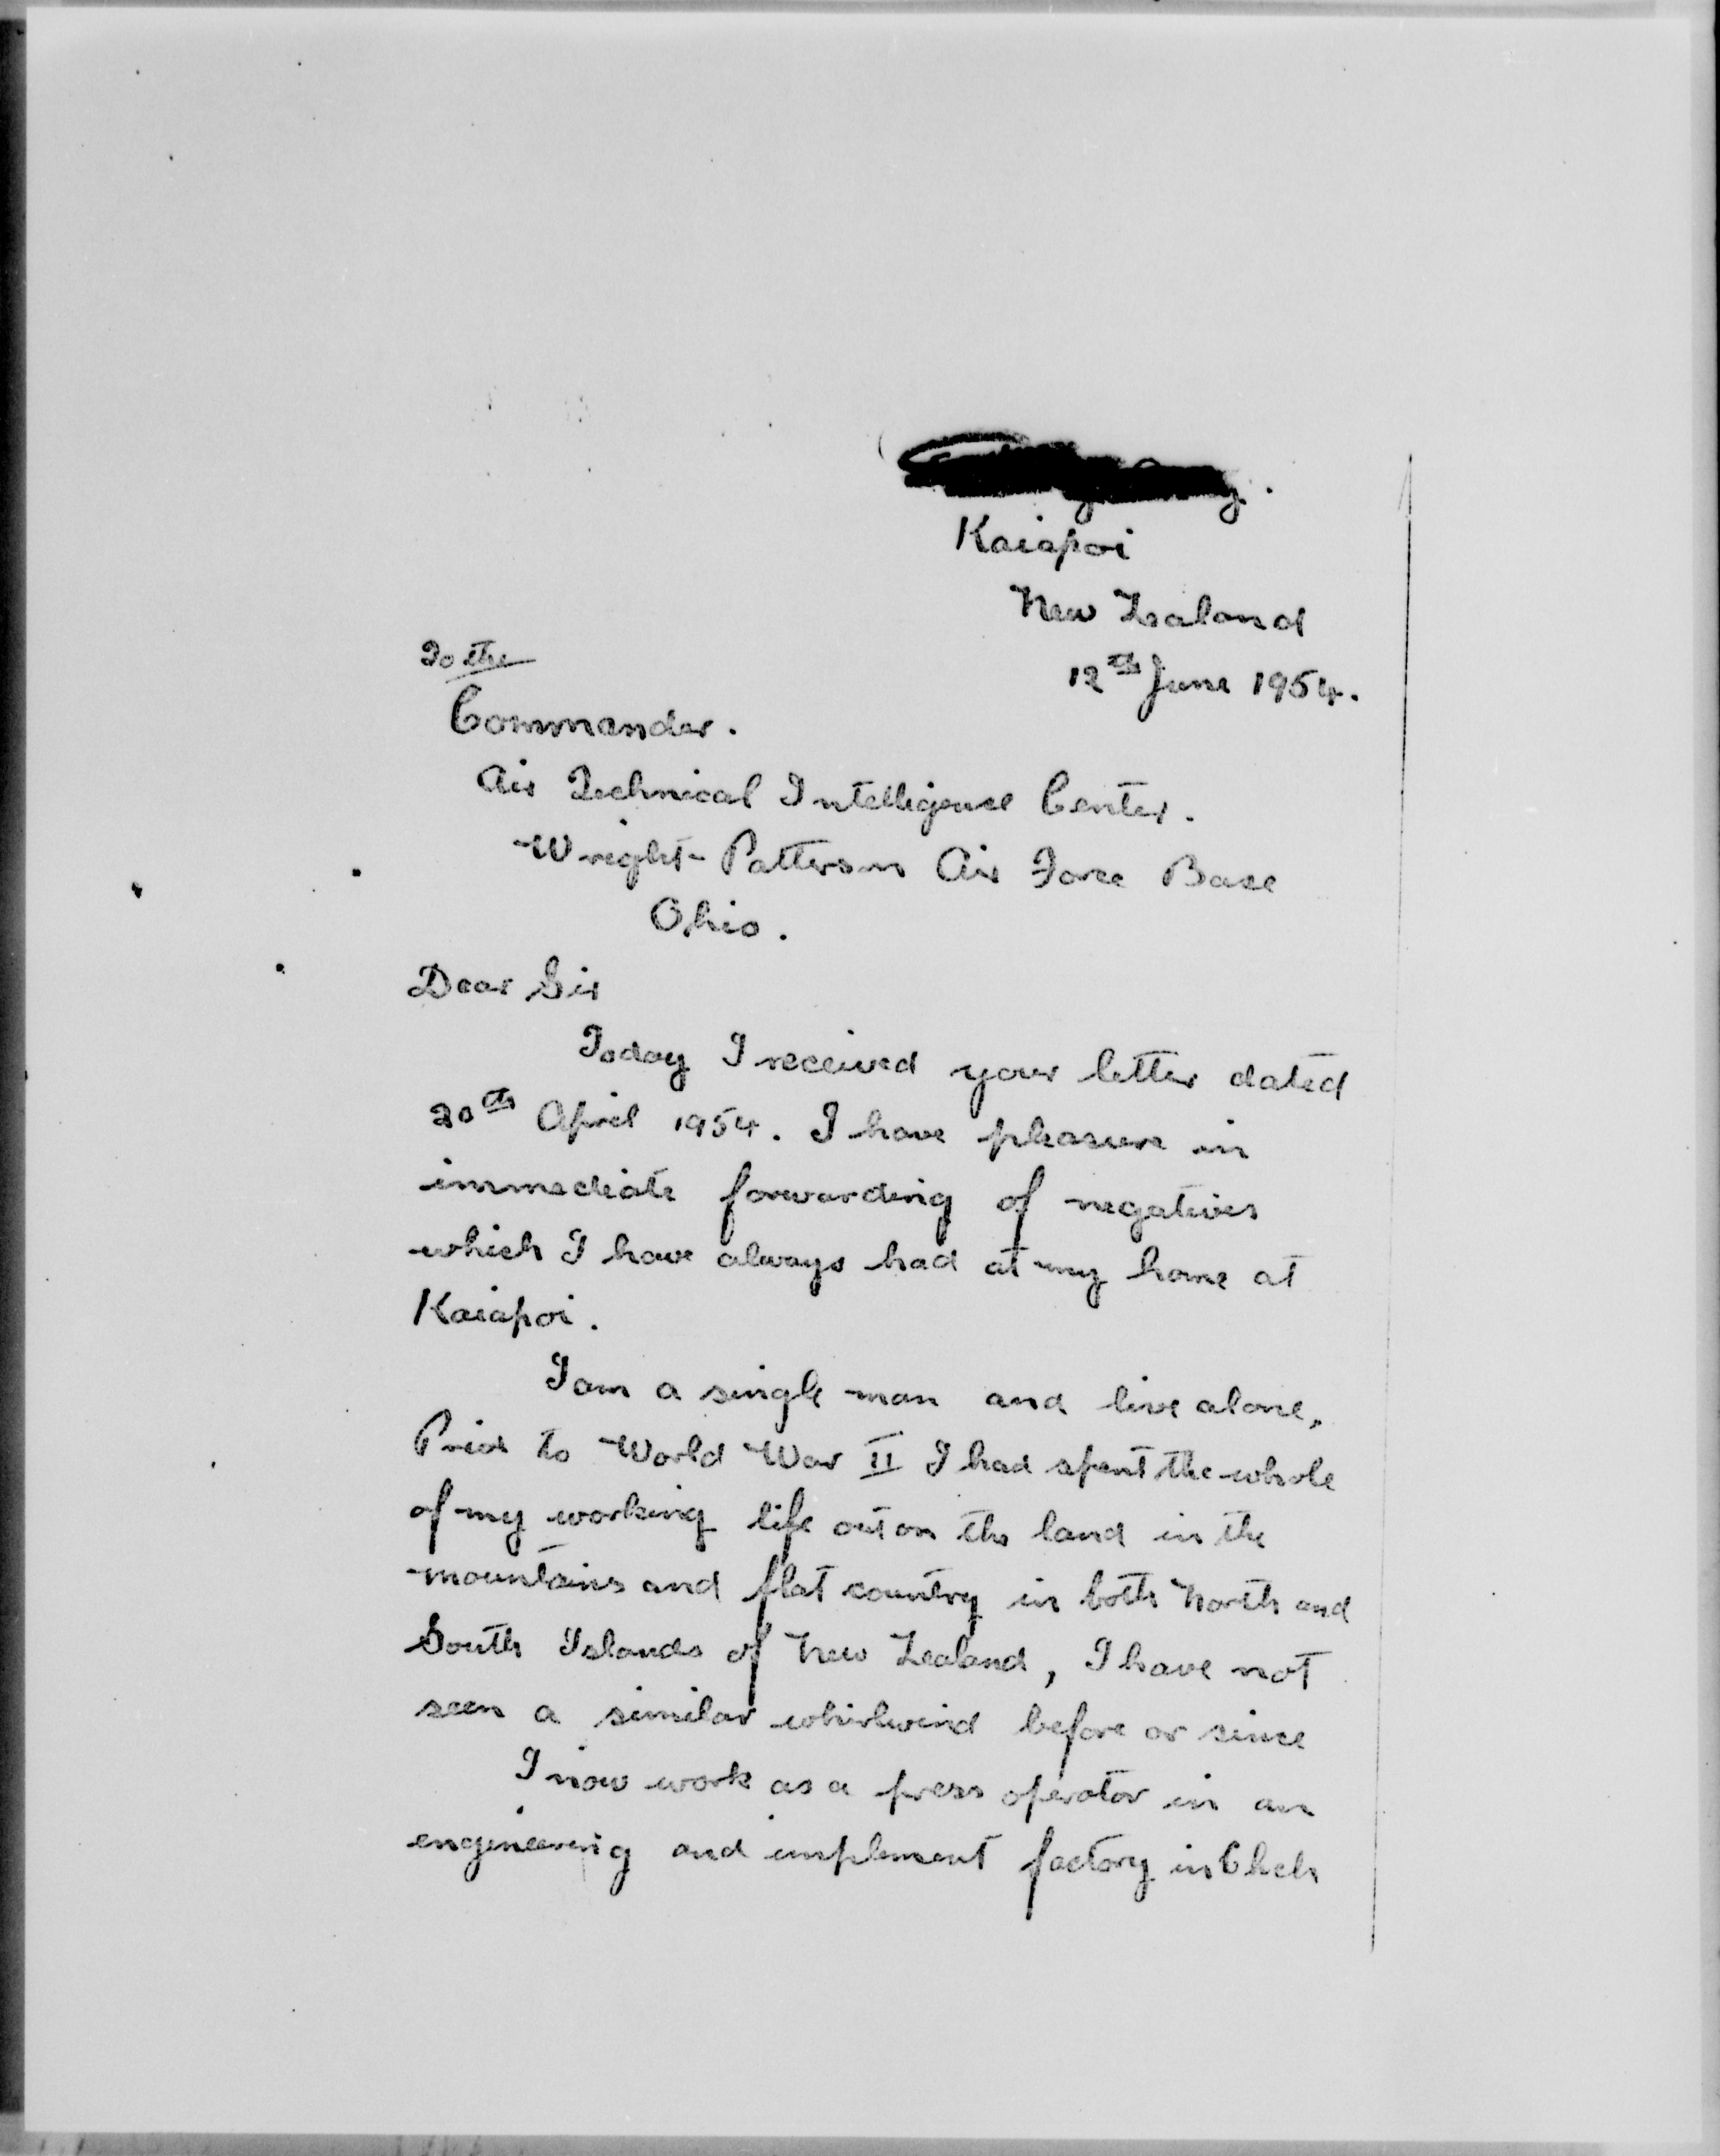 Kaiapoi
New Zealand
12th June 1954.
To the
Commander.
Air Technical Intelligence Center.
Wright-Patterson Air Force Base
Ohio.
Dear Sir
Today I received your letter dated
20th April 1954. I have pleasure in
immediate forwarding of negatives
which I have always had at my home at
Kaiapoi.
I am a single man and live alone,
Prior to World War II I had spent the whole
of my working life out on the land in the
mountains and flat country in both North and
South Islands of New Zealand, I have not
seen a similar whirlwind before or since
I now work as a press operator in an
engineering and implement factory in Chch